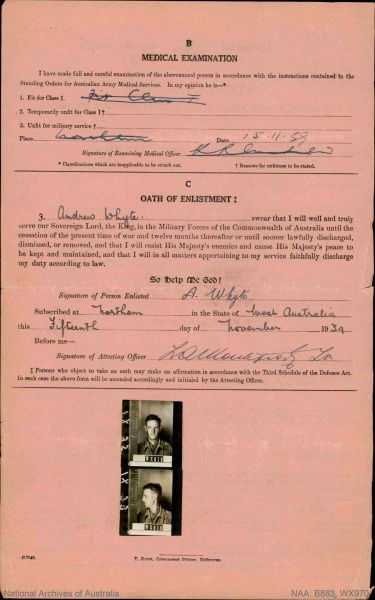 B
MEDICAL EXAMINATION
I have made full and careful examination of the abovenamed person in accordance with the instructions contained in the
Standing Orders for Australian Army Medical Services. In my opinion he is—*
1. Fit for Class I. Fit Class I
2. Temporarily unfit for Class I†
3. Unfit for military service †
Place Date 15.11.39
Signature of Examining Medical Officer
* Classifications which are inapplicable to be struck out. † Reasons for unfitness to be stated.
C
OATH OF ENLISTMENT ‡
I, Andrew Whyte swear that I will well and truly
serve our Sovereign Lord, the King, in the Military Forces of the Commonwealth of Australia until
the cessation of the present time of war and twelve months thereafter or until sooner lawfully discharged,
dismissed, or removed, and that I will resist His Majesty's enemies and cause His Majesty's peace
to be kept and maintained, and that I will in all matters appertaining to my service faithfully discharge
my duty according to law.
So Help Me God!
Signature of Person Enlisted A. Whyte
Subscribed at Northam in the State of West Australia
this Fifteenth day of November 1939
Before me—
Signature of Attesting Officer
‡ Persons who object to take an oath may make an affirmation in accordance with the Third Schedule of the Defence Act.
In such case the above form will be amended accordingly and initialed by the Attesting Officer.
Government Printer, Melbourne.
National Archives of Australia
NAA: B883, WX970